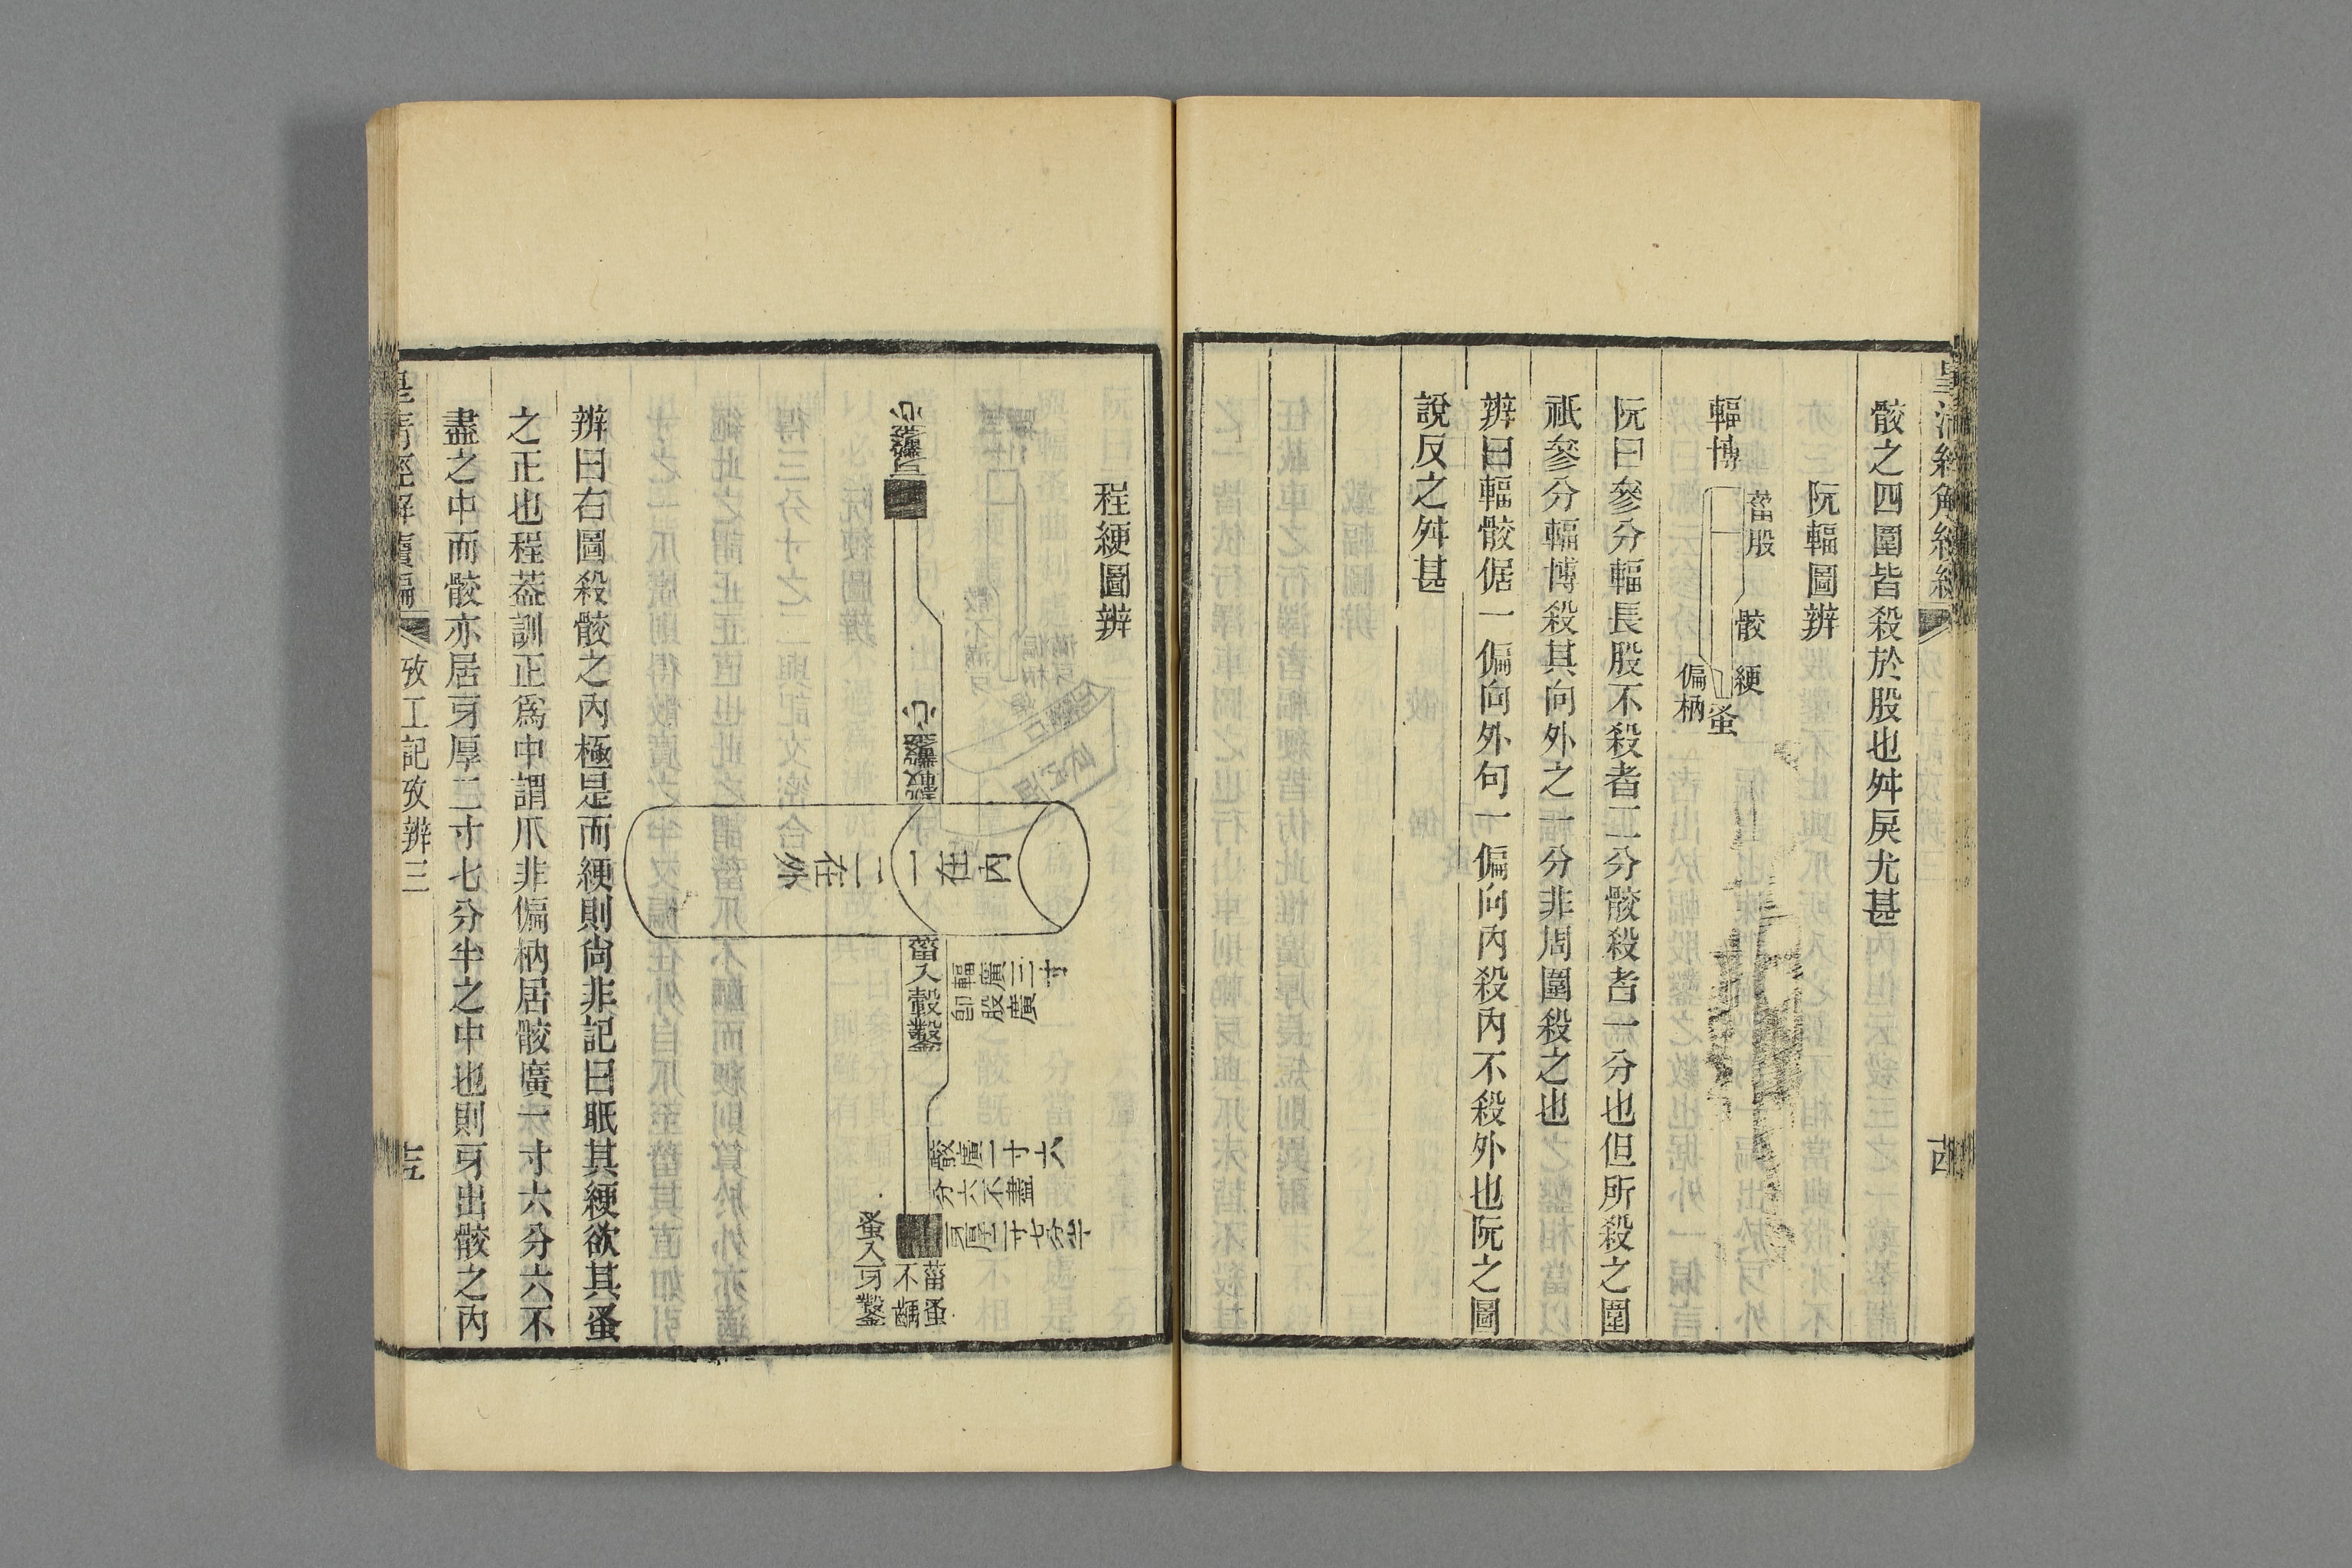 骹之四圍皆殺於股也舛戾尤甚
阮輻圖辨
輻博
菑股
骹
綆
蚤
偏柄
阮曰參分輻長股不殺者二分骹殺者一分也但所殺之圍
祇參分輻博殺其向外之一分非周圍殺之也
辨曰輻骹倨一偏向外句一偏向內殺內不殺外也阮之圖
說反之舛甚
程綆圖辨
內在一
二在外
菑入轂鑿
輻廣三寸
卽股廣
骹廣一寸六
分六不盡
牙厚二寸七分半
蚤入牙鑿
菑蚤
不齵
辨曰右圖殺骹之內極是而綆則尙非記曰眡其綆欲其蚤
之正也程葢訓正爲中謂爪非偏柄居骹廣一寸六分六不
盡之中而骹亦居牙厚二寸七分半之中也則牙出骹之內
皇淸經解續編
攷工記攷辨三